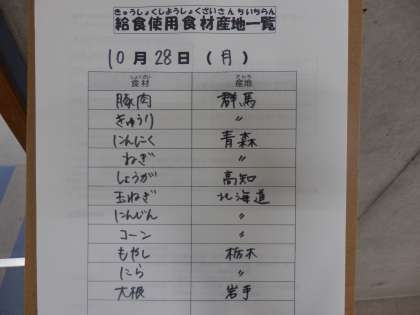 きゅうしょくしようしょくざいさんちいちらん
給食使用食材産地一覧
10月28日(月)
しょくざい さんち
食材 産地
豚肉 群馬
きゅうり 〃
にんにく 青森
ねぎ 〃
しょうが 高知
玉ねぎ 北海道
にんじん 〃
コーン 〃
もやし 栃木
にら 〃
大根 岩手